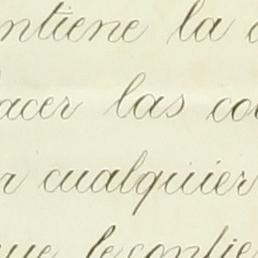 ntiene la
acer las co
r cualquier
que le confie